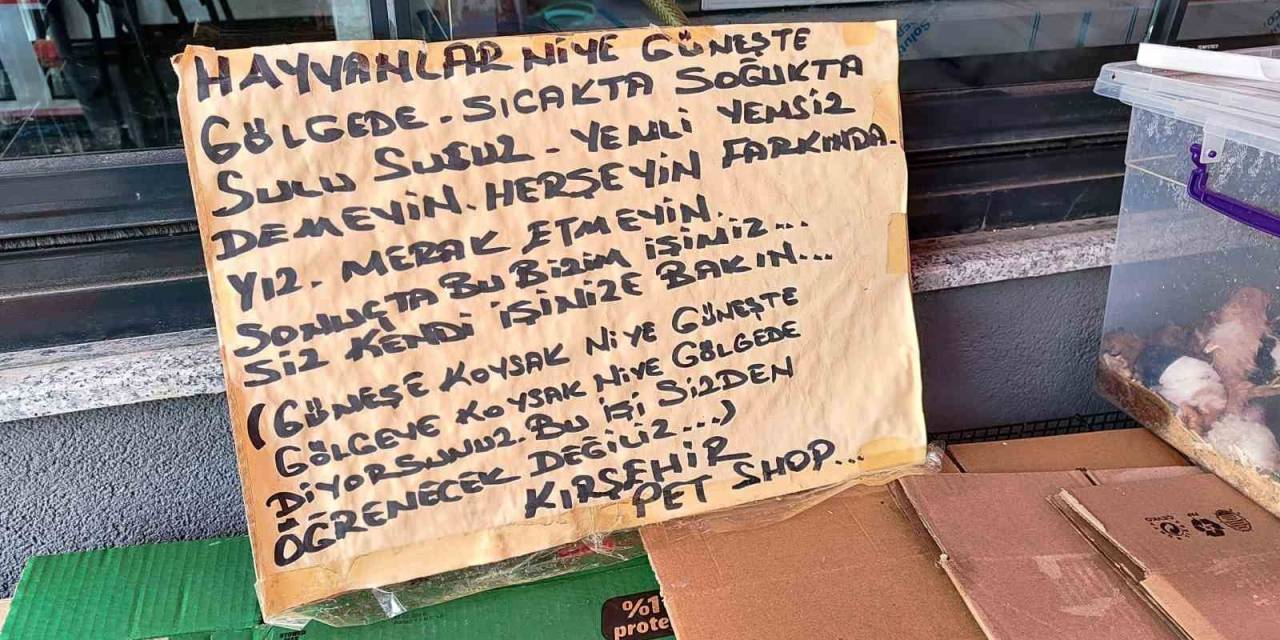 HAYVANLAR NİYE GÜNEŞTE
GÖLGEDE. SICAKTA SOĞUKTA
SULU SUSUZ - YEMLİ YEMSİZ
DEMEYİN. HERŞEYİN FARKINDA.
YIZ. MERAK ETMEYİN.
SONUÇTA BU BİZİM İŞİMİZ...
SİZ KENDİ İŞİNİZE BAKIN...
(GÜNEŞE KOYSAK NİYE GÜNEŞTE
GÖLGEYE KOYSAK NİYE GÖLGEDE
DİYORSUNUZ. BU İŞİ SİZDEN
ÖĞRENECEK DEĞİLİZ...)
KIRŞEHİR
PET SHOP...